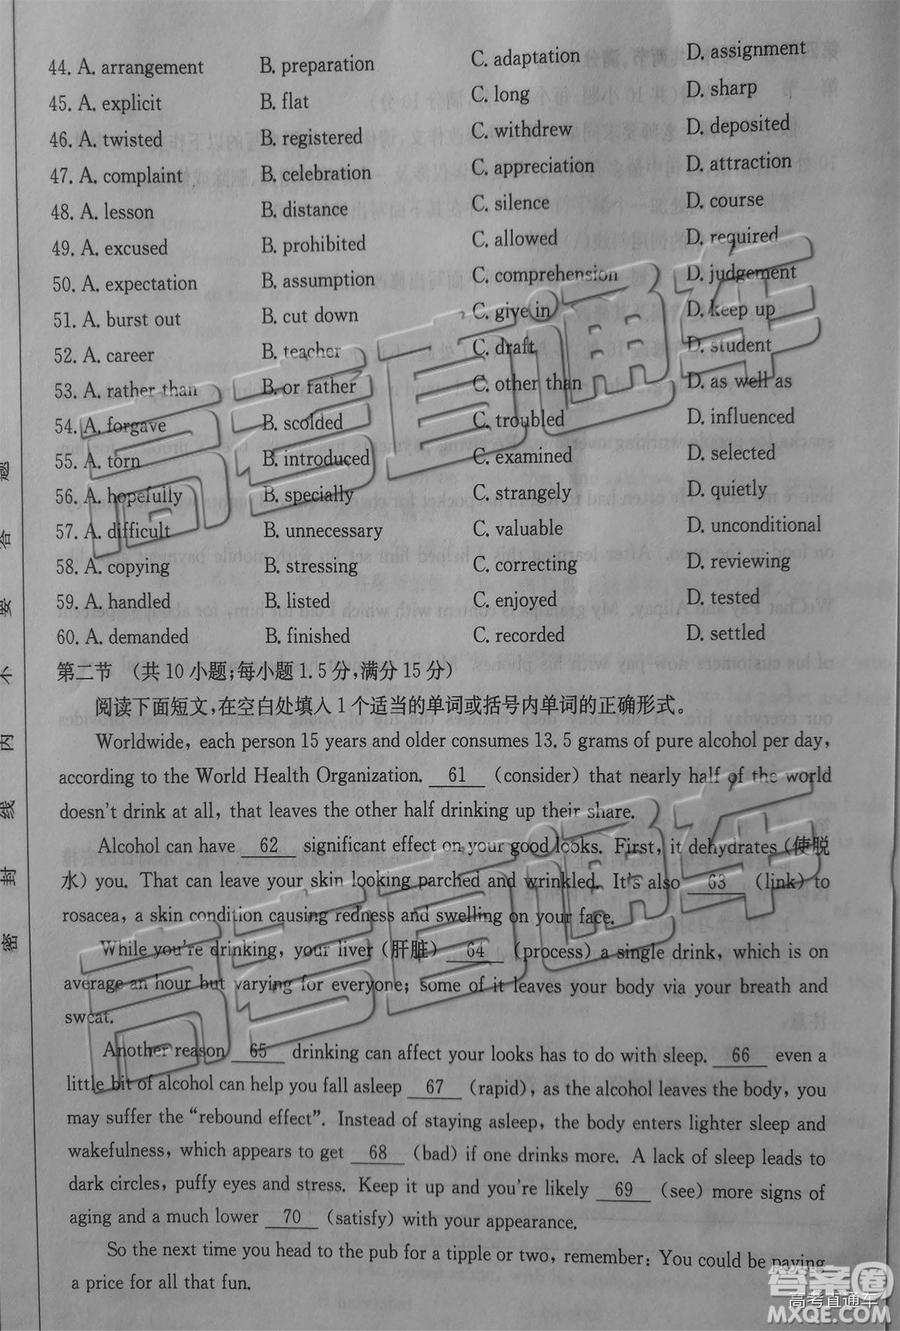 44. A. arrangement B. preparation C. adaptation D. assignment
45. A. explicit B. flat C. long D. sharp
46. A. twisted B. registered C. withdrew D. deposited
47. A. complaint B. celebration C. appreciation D. attraction
48. A. lesson B. distance C. silence D. course
49. A. excused B. prohibited C. allowed D. required
50. A. expectation B. assumption C. comprehension D. judgement
51. A. burst out B. cut down C. give in D. keep up
52. A. career B. teacher C. draft D. student
53. A. rather than B. or rather C. other than D. as well as
54. A. forgave B. scolded C. troubled D. influenced
55. A. torn B. introduced C. examined D. selected
56. A. hopefully B. specially C. strangely D. quietly
57. A. difficult B. unnecessary C. valuable D. unconditional
58. A. copying B. stressing C. correcting D. reviewing
59. A. handled B. listed C. enjoyed D. tested
60. A. demanded B. finished C. recorded D. settled
第二节 (共 10 小题;每小题 1. 5 分,满分 15 分)
阅读下面短文,在空白处填入 1 个适当的单词或括号内单词的正确形式。
Worldwide, each person 15 years and older consumes 13. 5 grams of pure alcohol per day,
according to the World Health Organization. 61 (consider) that nearly half of the world
doesn't drink at all, that leaves the other half drinking up their share.
Alcohol can have 62 significant effect on your good looks. First, it dehydrates (使脱
水) you. That can leave your skin looking parched and wrinkled. It's also 63 (link) to
rosacea, a skin condition causing redness and swelling on your face.
While you're drinking, your liver (肝脏) 64 (process) a single drink, which is on
average an hour but varying for everyone; some of it leaves your body via your breath and
sweat.
Another reason 65 drinking can affect your looks has to do with sleep. 66 even a
little bit of alcohol can help you fall asleep 67 (rapid), as the alcohol leaves the body, you
may suffer the “rebound effect”. Instead of staying asleep, the body enters lighter sleep and
wakefulness, which appears to get 68 (bad) if one drinks more. A lack of sleep leads to
dark circles, puffy eyes and stress. Keep it up and you're likely 69 (see) more signs of
aging and a much lower 70 (satisfy) with your appearance.
So the next time you head to the pub for a tipple or two, remember: You could be paying
a price for all that fun.
密 封 线 内 不 要 答 题
高考直通车
高考直通车
答案圈
高考直通车
MXQE.COM